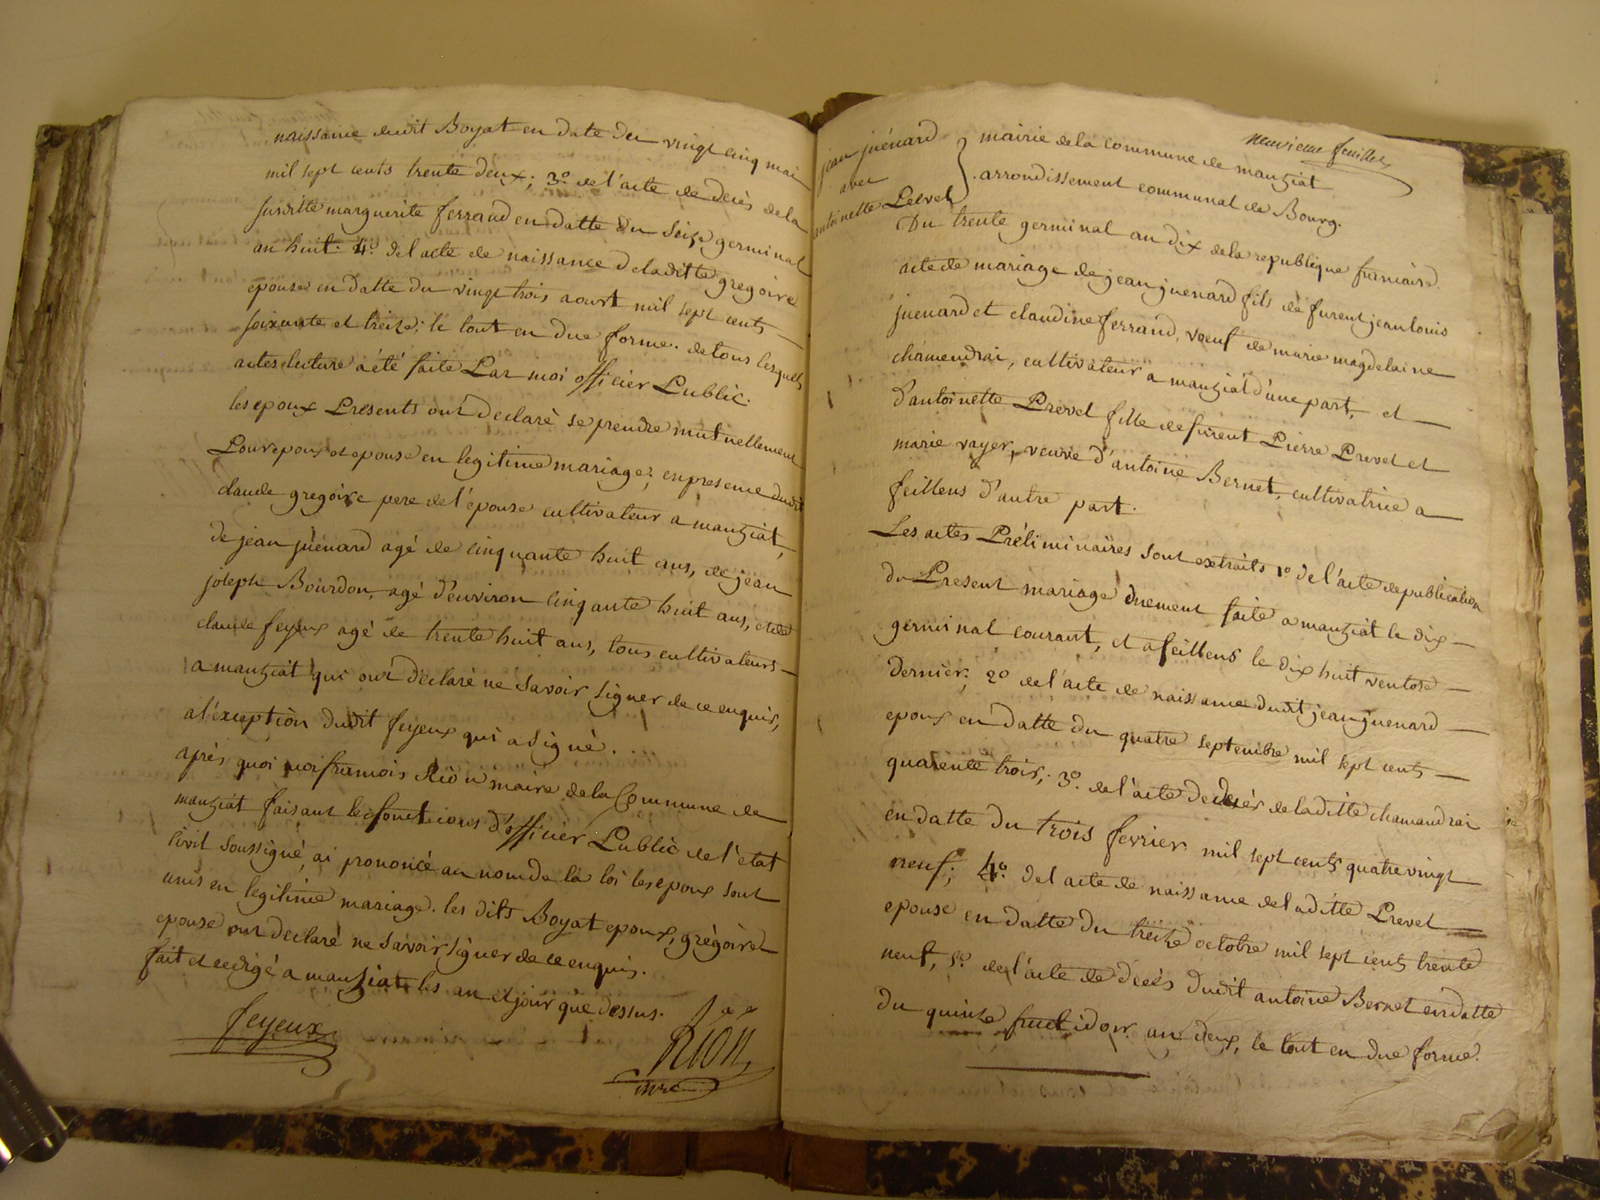 naissance dudit Boyat en date du vingt cinq mai
mil sept cents trente deux; 3º. de l'acte de décès de la
susditte marguerite ferrand en datte du seize germinal
an huit. 4º. del acte de naissance de laditte gregoire
épouse en datte du vingt trois aoust mil sept cents
soixante et treize; le tout en due forme. de tous lesquels
actes lecture a été faite Par moi officier Public.
les epoux Presents ont declaré se prendre mutuellement
Pour epoux et epouse en legitime mariage; en presence dudit
claude gregoire pere de l'épouse cultivateur a manziat,
de jean juénard agé de cinquante huit ans, de jean
joseph Bourdon, agé d'environ cinqante huit ans, et de
claude feyeux agé de trente huit ans, tous cultivateurs
a manziat qui ont declaré ne savoir signer de ce enquis,
a l'exception dudit feyeux qui a signé.
après quoi moi francois Rion maire de la Commune de
manziat faisant les fonctions d'officier Public de l'état
civil soussigné, ai prononcé au nom de la loi les epoux sont
unis en legitime mariage. les dits Boyat epoux, grégoire
epouse ont declaré ne savoir signer de ce enquis.
fait et redigé a manziat les an et jour que dessus.
feyeux
Rion
mre
neuvieme feuillet
jean juénard
avec
antoinette Prevel
mairie de la commune de manziat
arrondissement communal de Bourg.
Du trente germinal an dix de la republique francaise.
acte de mariage de jean juenard fils de furent jean louis
juenard et claudine ferrand, voeuf de marie magdelaine
chamendrai, cultivateur a manziat d'une part, et
d'antoinette Prevel fille de furent Pierre Prevel et
marie vayer, veuve d'antoine Bernet, cultivatrice a
feillens d'autre part.
Les actes Préliminaires sont extraits 1º de l'acte de publication
du Present mariage duement faite a manziat le dix
germinal courant, et a feillens le dix huit ventose
dernier; 2º del'acte de naissance dudit jean juenard
epoux en datte du quatre septembre mil sept cents
quarente trois; 3º. de l'acte de décès de laditte chamandrai
en datte du trois fevrier mil sept cents quatre vingt
neuf; 4º. del acte de naissance de laditte Prevel
epouse en datte du treize octobre mil sept cents trente
neuf, 5º. de l'acte de décès dudit antoine Bernet en datte
du quinze fructidor an deux, le tout en due forme.